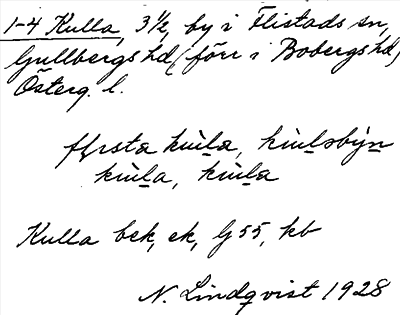 1-4 Kulla, 3 1/2, by i Flistads sn,
Gullbergs hd (förr i Bobergs hd)
Österg. l.
fɟrsta kùla, kùlsbýn
kùla, kùla
Kulla bek, ek, G 55, kb
N. Lindqvist 1928